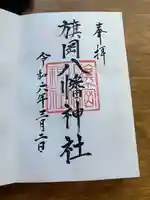 奉拝
旗岡八幡神社
令和八年三月二日